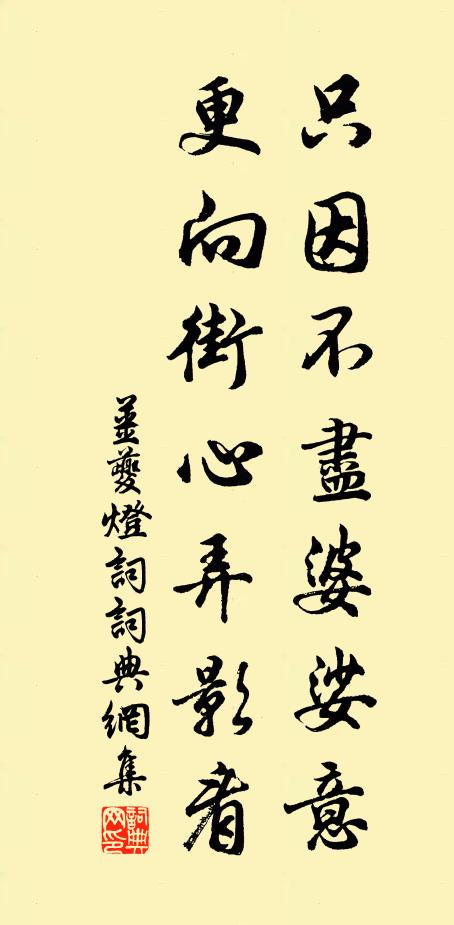 只因不盡婆娑意
更向街心弄影看
姜夔燈詞詞典網集
詞典网印